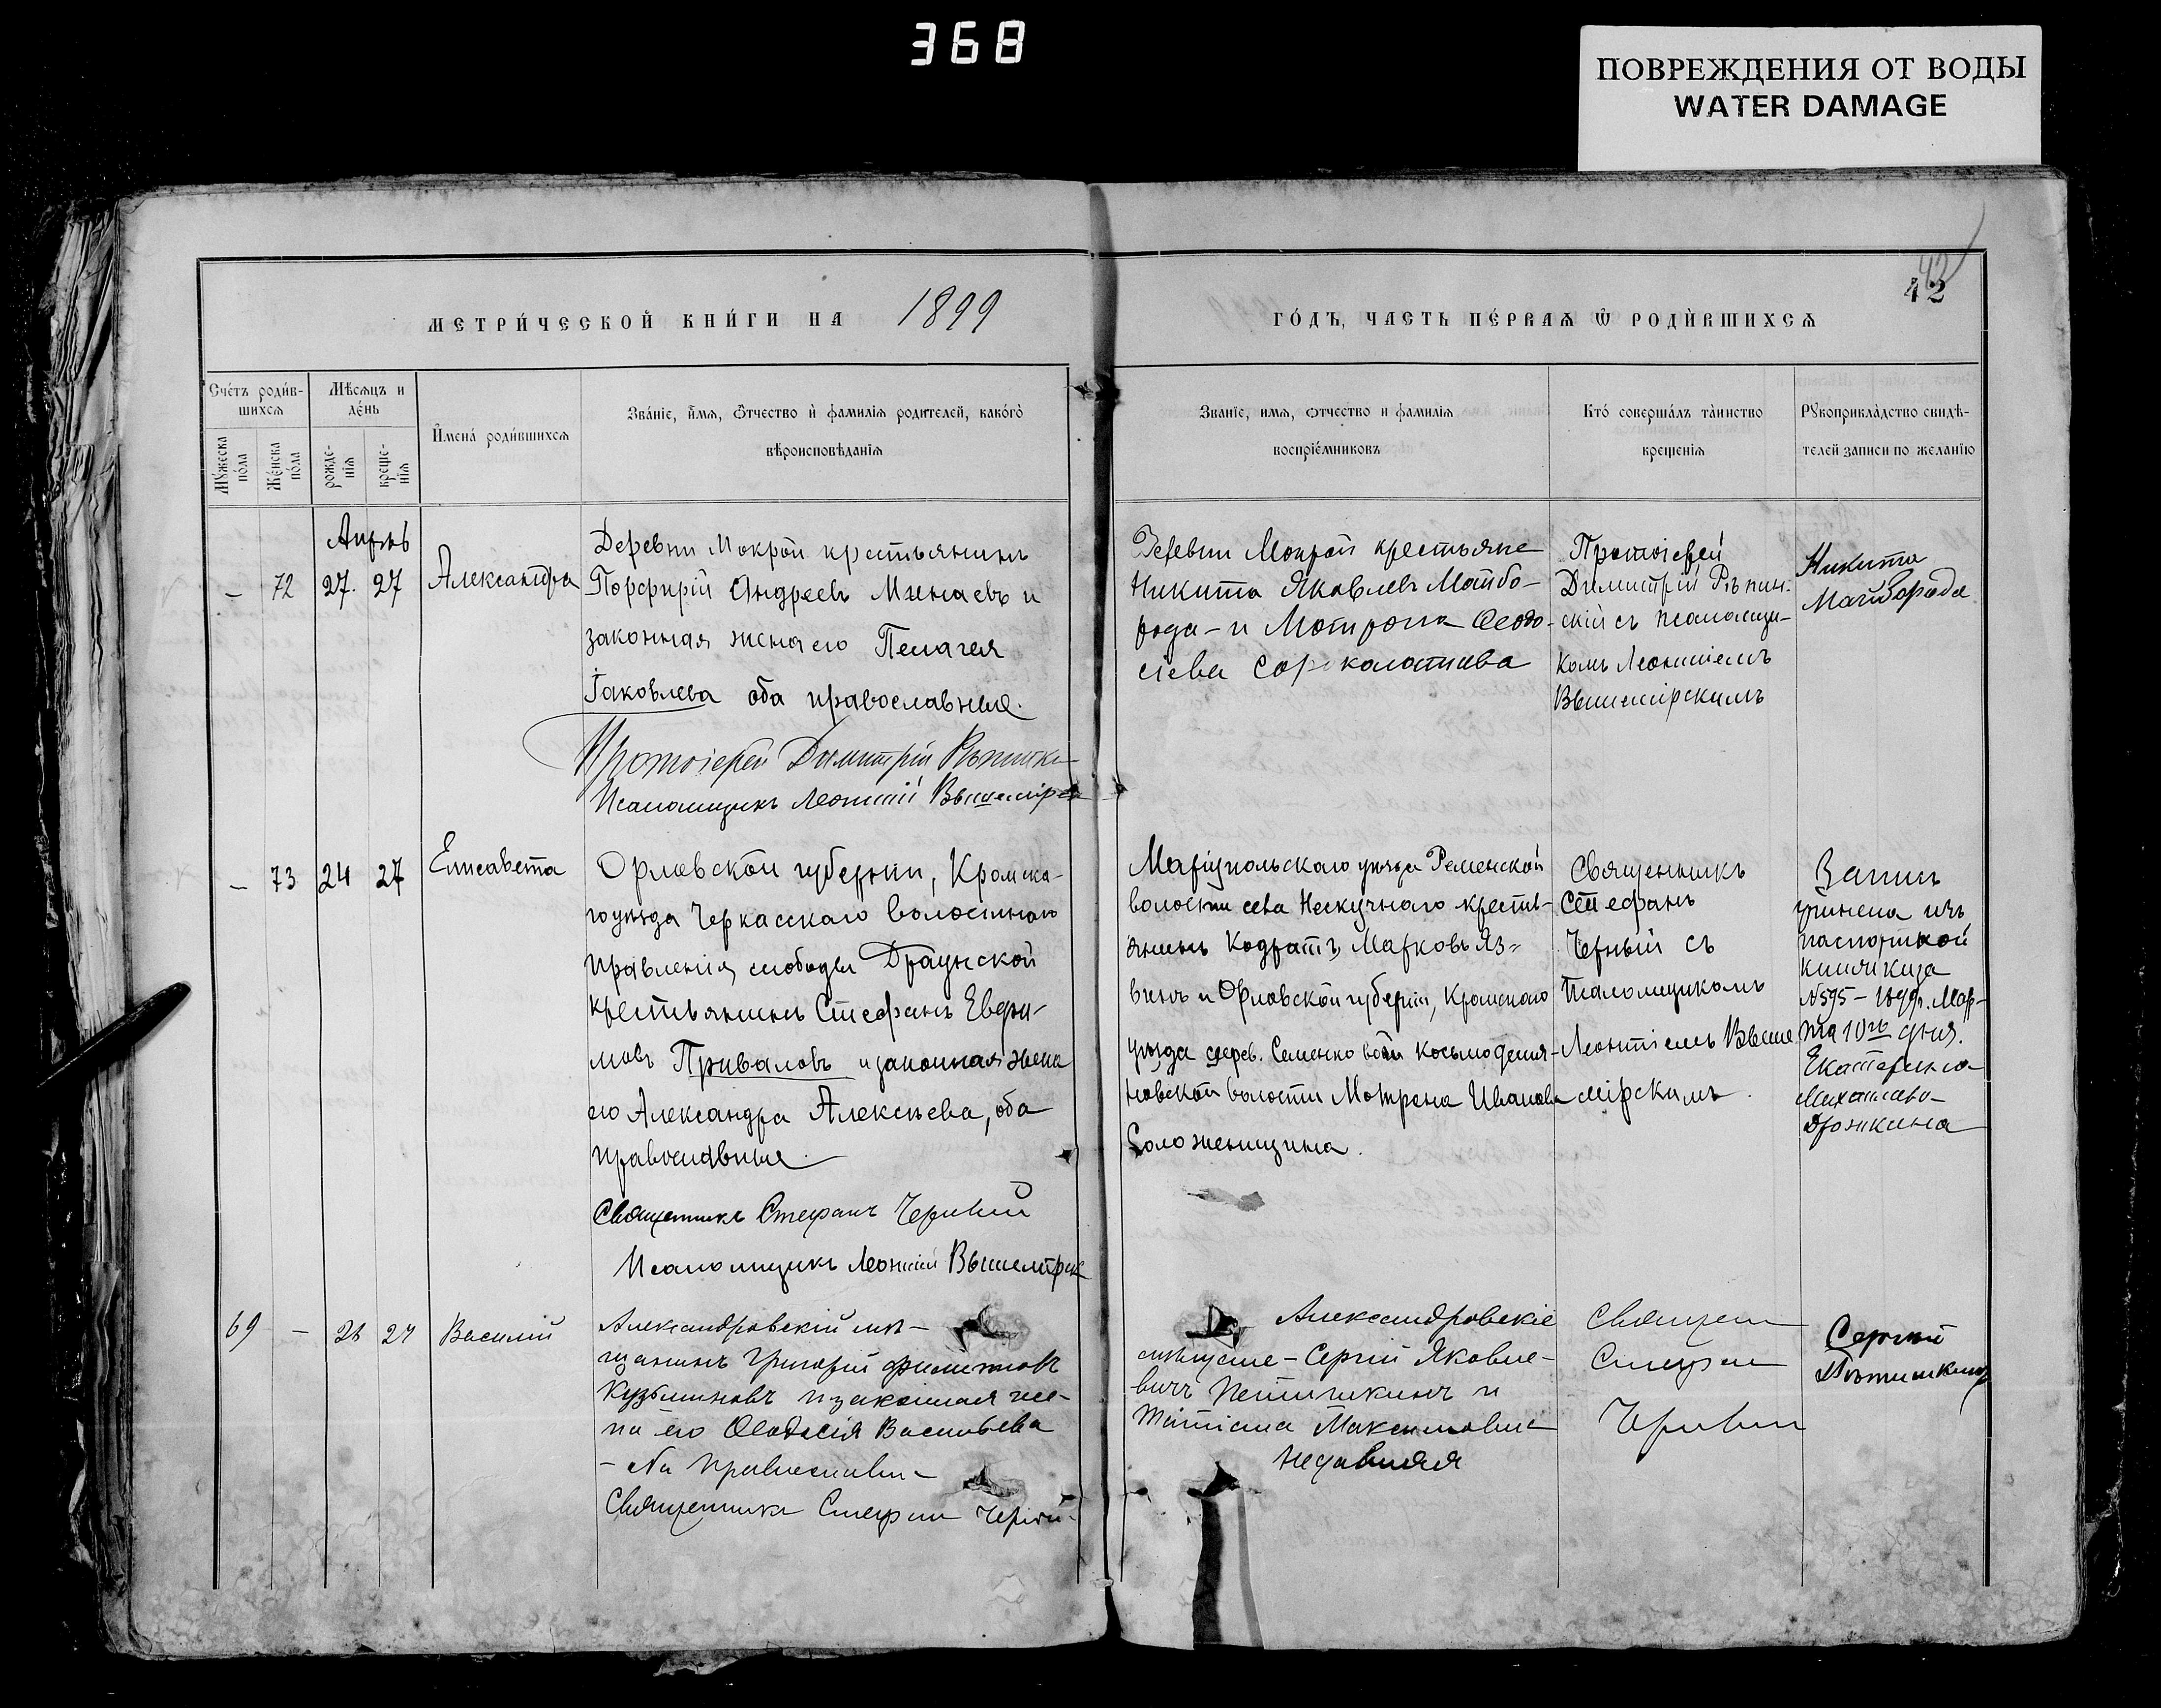 368
ПОВРЕЖДЕНИЯ ОТ ВОДЫ
WATER DAMAGE
42
42
МЕТРИ́ЧЕСКОЙ КНИ́ГИ НА 1899
ГО́ДЪ, ЧАСТЬ ПЕ́РВАѦ Ѿ РОДИ́ВШИХСѦ
Сче́тъ роди́в-
шихсѧ
Мѣ́сѧцъ и
де́нь
Мꙋ́жеска
по́ла
Же́нска
по́ла
рожде-
нїѧ
креще-
нїѧ
И҆мена́ роди́вшихсѧ
Зва́нїе, и҆́мѧ, ѻ҆́тчество и҆ фамилїѧ родителей, како́гѡ
вѣроисповѣданїѧ
Званїе, имѧ, ѻтчество и фамилїѧ
воспрїе́мниковъ
Кто́ соверша́лъ та́инство
крещенїѧ
Рꙋкоприкла́дство свидѣ-
телей записи по желанїю
Апрѣль
– 72 27. 27 Александра
Деревни Мокрой крестьянинъ
Порфирій Андреевъ Минаевъ и
законная жена его Пелагея
Іаковлева оба православные.
Протоіерей Димитрій Рѣпитск
Псаломщикъ Леонтій Вышемірск
Деревни Мокрой крестьяне
Никита Яковлевъ Майбо-
рода – и Мотрона Ѳеодо-
сіева Сороколатива
Протоіерей
Димитрій Рѣпин-
скій съ псаломщи-
комъ Леонтіемъ
Вышемірскимъ
Никита
Майборода
– 73 24 27 Елисавета
Орловской губерніи, Кромска-
го уѣзда Черкасскаго волостного
правленія, слободы
крестьянинъ Стефанъ Евфи-
мовъ Приваловъ и законная жена
его Александра Алексѣева, оба
православные.
Священникъ Стефанъ Черный
Псаломщикъ Леонтій Вышемірск
Маріупольскаго уѣзда
волости села Нескучнаго кресть-
янинъ Кодратъ Марковъ Яз-
винъ и Орловской губерніи, Кромскаго
уѣзда дерев. Семенко Косьмодемья-
новской волости Мотрона Иванова
Соложеницина.
Священникъ
Стефанъ
Черный съ
псаломщикомъ
Леонтіемъ Выше
мірскимъ.
Запись
учинена изъ
паспортной
книжки за
№ 595 – 1899 г. Мар-
та 10го дня.
Екатерина
Михайлова
Дрожкина
69 – 26 27 Василій
Александровскій мѣ-
щанинъ Григорій Филиповъ
Кузьминовъ и законная же-
на его Ѳеодосія Васильева
Священникъ Стефанъ Черный
Александровскіе
мѣщане – Сергій Яковле-
вичъ Петишкинъ и
Татіана Максимовна
Священ
Стефан
Черный
Сергѣй